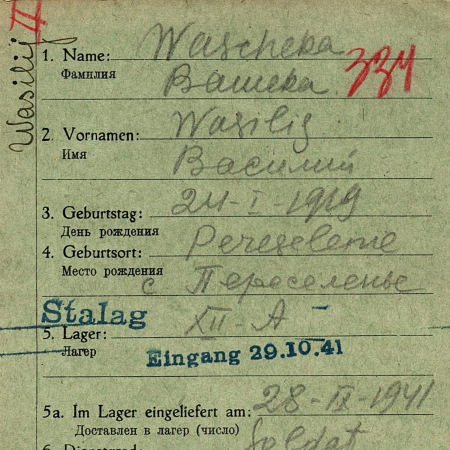 Wasilij II
1. Name: Wascheka
Фамилия Вашека 334
2. Vornamen: Wasilij
Имя Василий
3. Geburtstag: 24-I-1919
День рождения
4. Geburtsort: Pereselenie
Место рождения с Переселенье
Stalag XII-A
5. Lager:
Лагер Eingang 29.10.41
5a. Im Lager eingeliefert am: 28-IX-1941
Доставлен в лагер (число)
Soldat